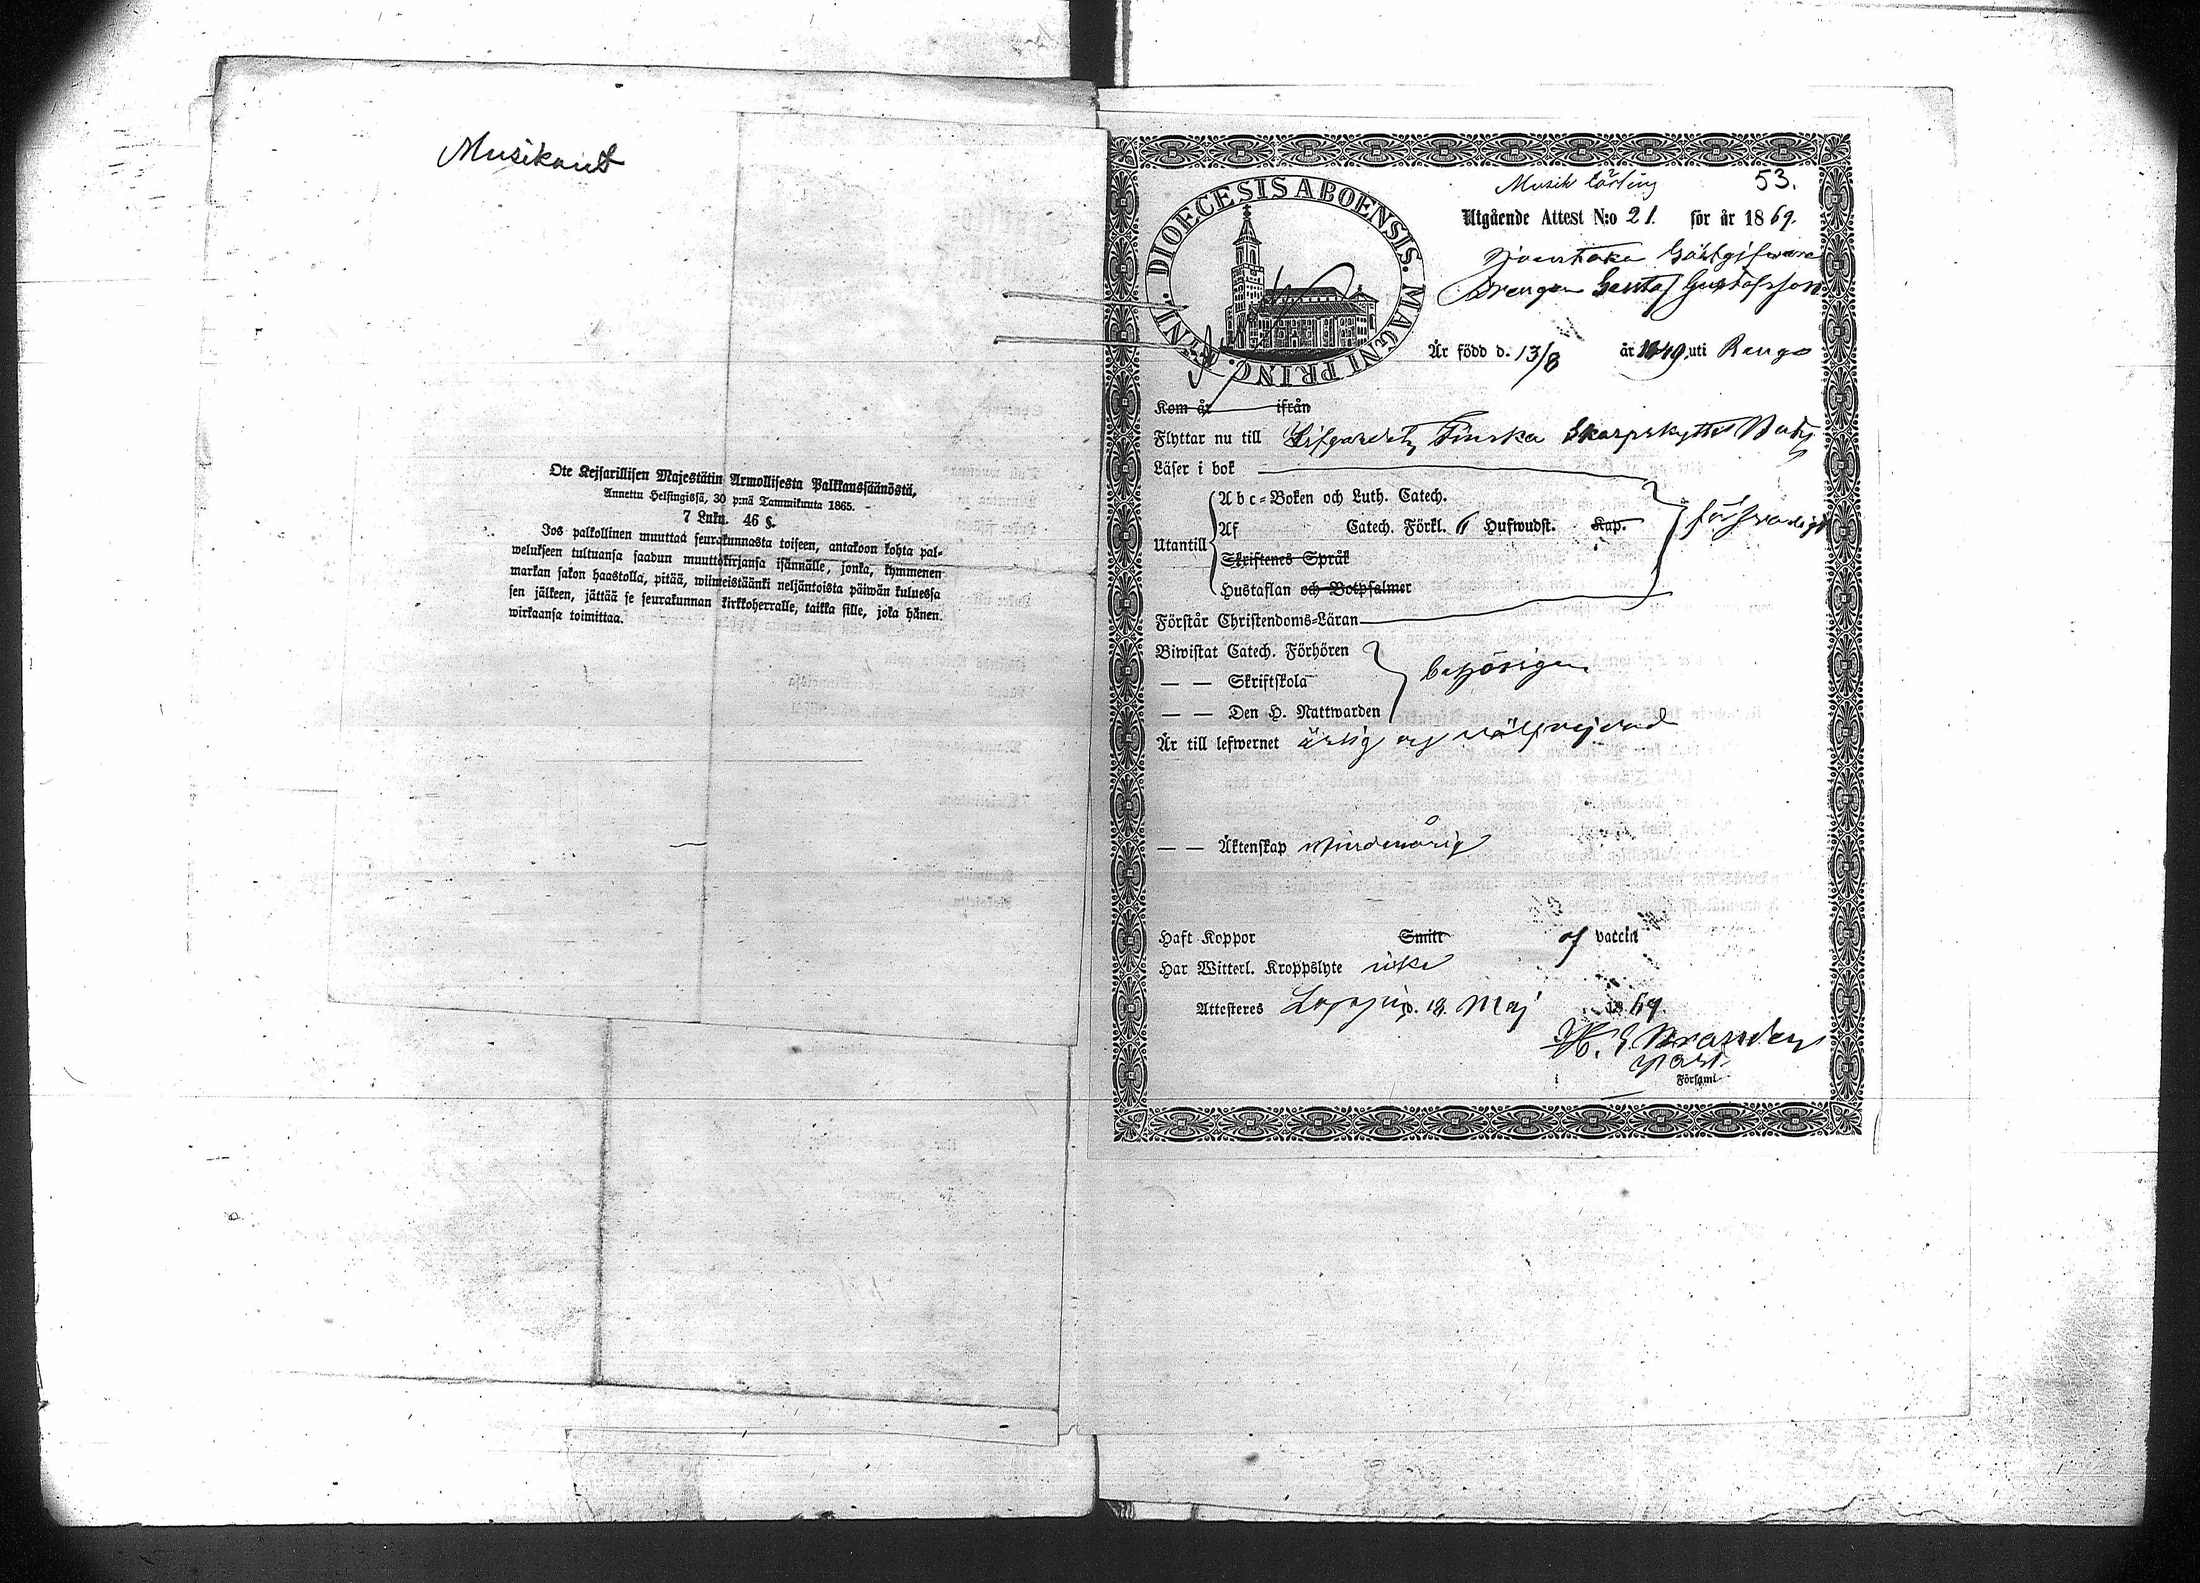 Musikant
Ote Keisarillisen Majestätin Armollisesta Palkkaussäänöstä,
Annettu Helsingissä, 30 p:nä Tammikuuta 1865.
7 Luku. 46 §.
Jos palkollinen muuttaa seurakunnasta toiseen, antakoon kohta pal-
welukseen tultuansa saadun muuttokirjansa isännälle, jonka, kymmenen
markan sakon haastolla, pitää, wiimeistäänki neljäntoista päiwän kuluessa
sen jälkeen, jättää se seurakunnan kirkkoherralle, taikka sille, joka hänen
wirkaansa toimittaa.
DIOECESIS ABOENSIS. MAGNI PRINC. FINL.
Musik lärling 53.
Utgående Attest N:o 21. för år 1869.
Gästgifware
Drengen Gustaf Gustafsson
Är född d. 13/8 år 1849 uti Rengo
Kom år ifrån
Flyttar nu till Lifgardets Finska Skarpskytte Bat
Läser i bok
Abc-Boken och Luth. Catech.
Utantill Af Catech. Förkl. 6 Hufwudst. Kap. försvarligt
Skriftenes Språk
Hustaflan och Botpsalmer
Förstår Christendoms-Läran
Biwistat Catech. Förhören
— — Skriftskola behörigen
— — Den H. Nattwarden
Är till lefwernet ärlig och välfrejdad
— — Äktenskap Minderårig
Haft Koppor Smitt af vaccin
Har Witterl. Kroppslyte icke
Attesteres Loppis d. 18 Maj 1869.
H. G. Brander
past.
i Församl.